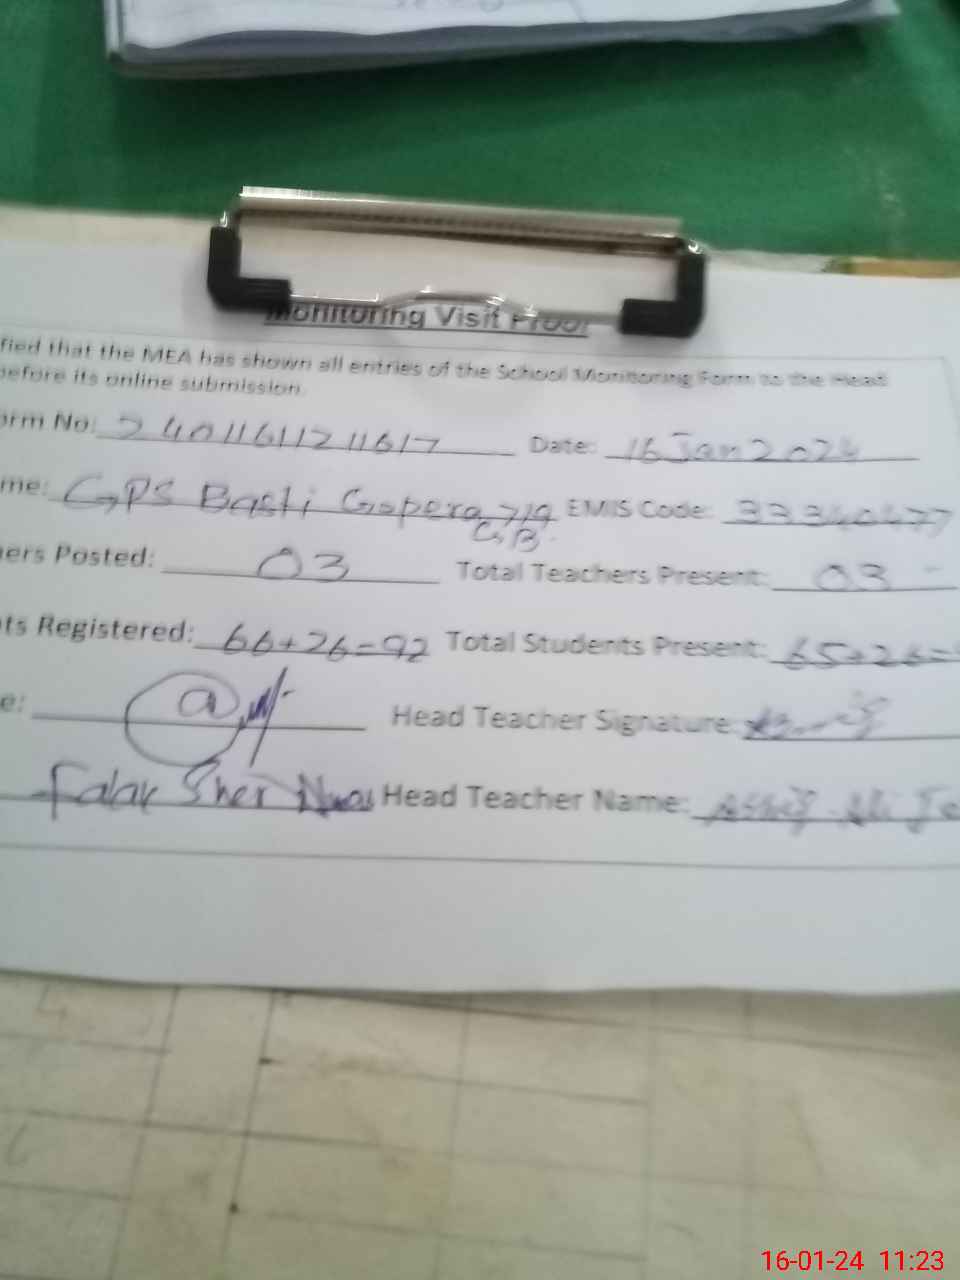 Monitoring Visit Proof
fied that the MEA has shown all entries of the School Monitoring Form to the Head
before its online submission.
orm No: 24011611211617 Date: 16 Jan 2024
me: GPS Basti Gopera 719 EMIS Code: 33340477
GB
ers Posted: 03 Total Teachers Present: 03
ts Registered: 66+26=92 Total Students Present: 65+26=
e: Head Teacher Signature:
Falak Sher Head Teacher Name: Ali
16-01-24 11:23